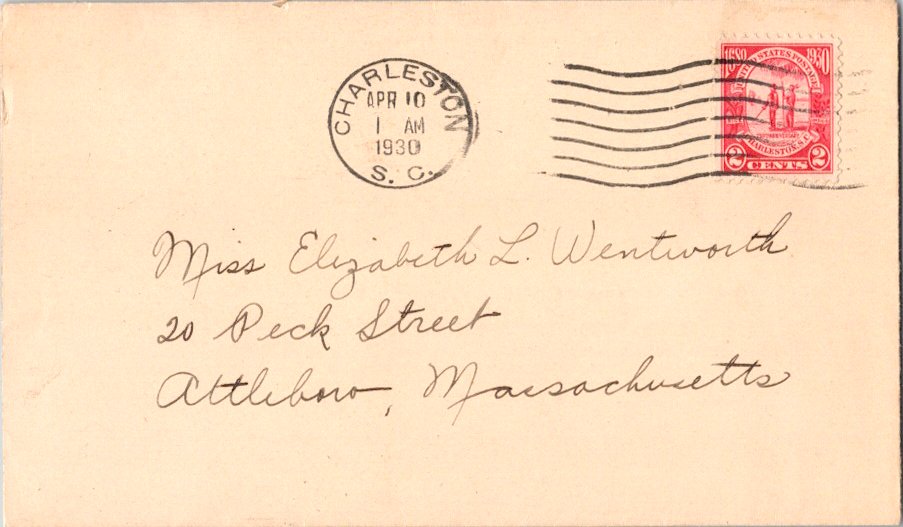 CHARLESTON
APR 10
1 AM
1930
S. C.
1680 1930
UNITED STATES POSTAGE
ANNIVERSARY
CHARLESTON S.C.
2 CENTS 2
Miss Elizabeth L. Wentworth
20 Peck Street
Attleboro, Massachusetts